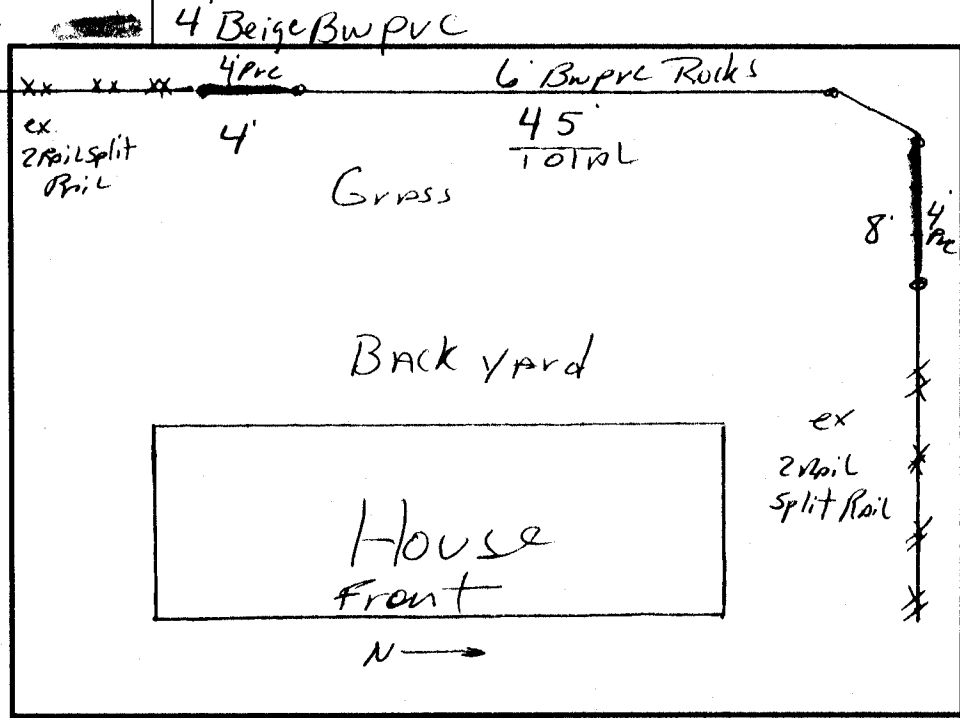 4' Beige BW PVC
4' PVC
6' BW PVC Rocks
xx xx xx
ex.
2 Rail Split
Rail
4'
45'
TOTAL
Grass
8'
4'
PVC
Back yard
ex
2 Rail
Split Rail
House
Front
N